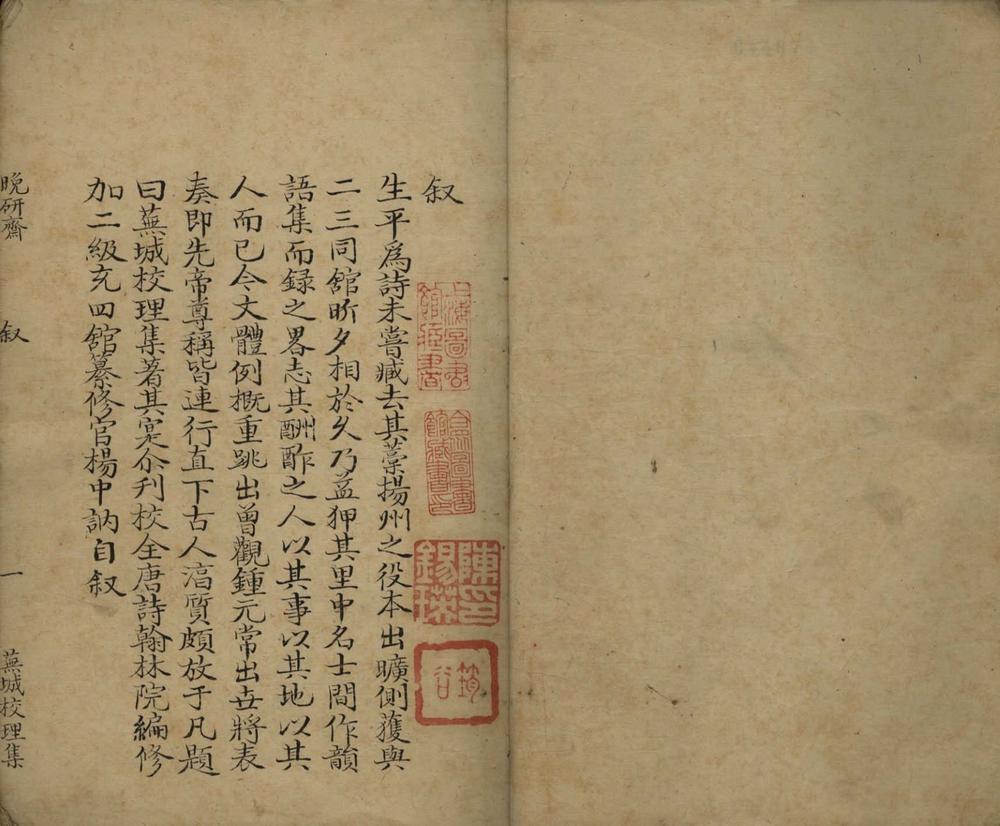 叙
生平爲詩未嘗臧去其藁揚州之役本出曠側獲與
二三同舘昕夕相於久乃益狎其里中名士間作韻
語集而録之畧志其酬酢之人以其事以其地以其
人而已今文體例概重跳出曾觀鍾元常出丗將表
奏即先帝尊稱皆連行直下古人淯質頗放于凡題
曰蕪城校理集著其寔尒刋校全唐詩翰林院編修
加二級充四舘纂修官楊中訥自叙
晚研齋 叙 一 蕪城校理集
上海圖書館藏書
合眾圖書館藏書印
陳印錫琛
筠谷